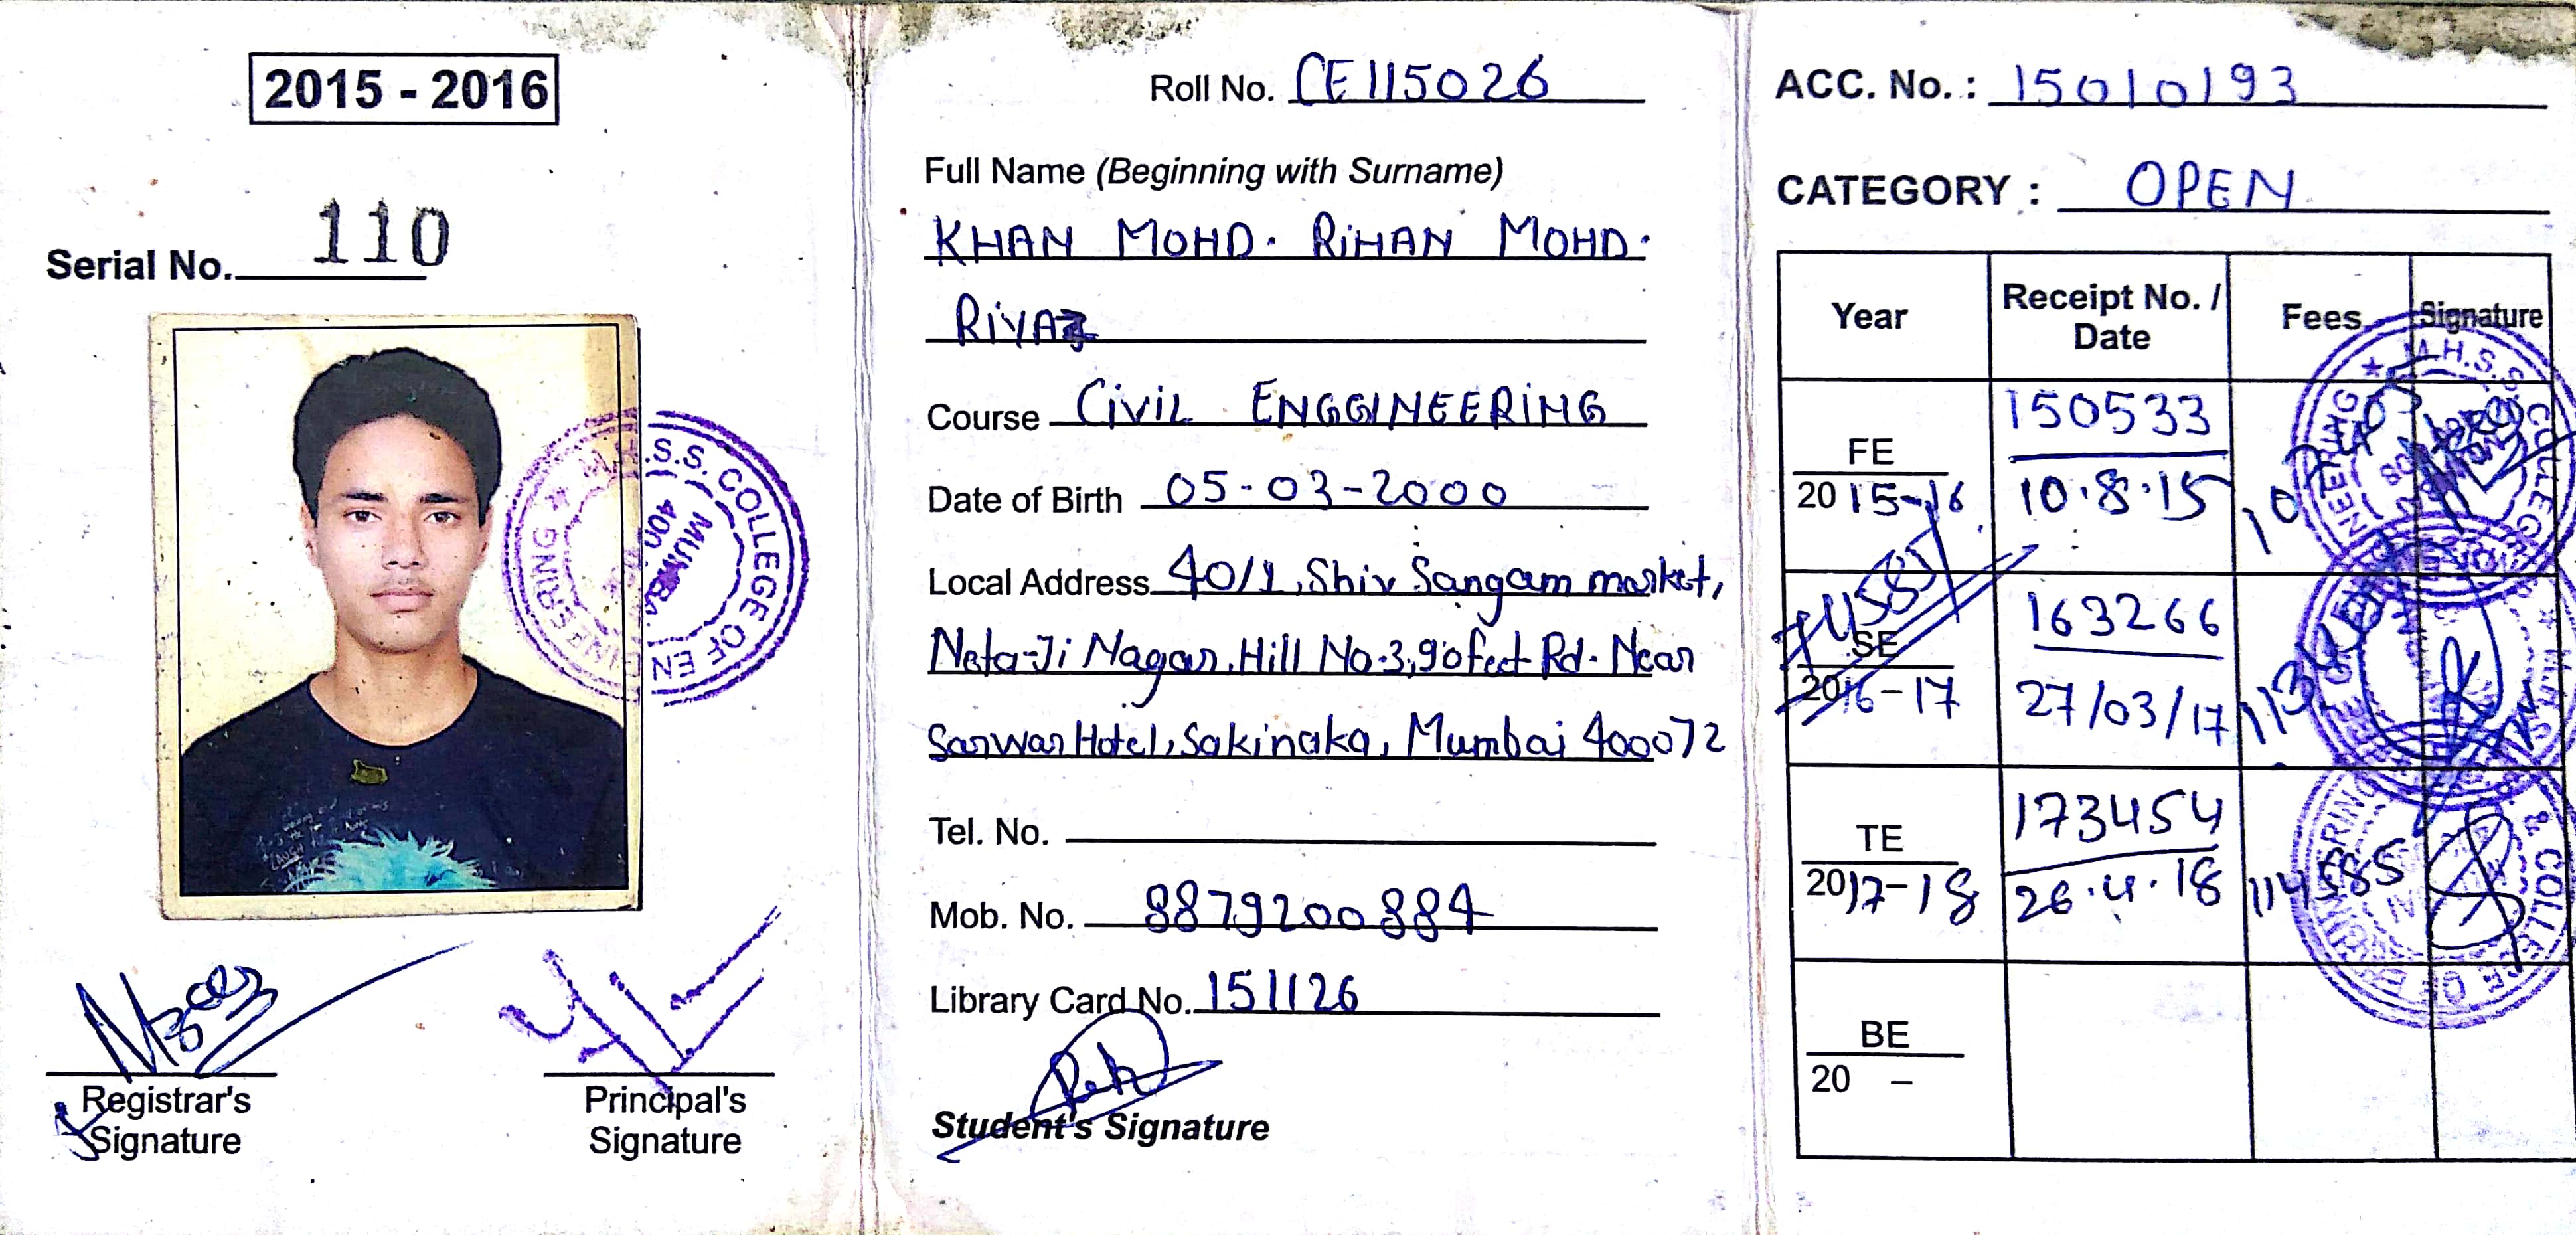 2015 - 2016
Serial No. 110
S.S. COLLEGE OF EN
NEERING
MUMBA
400
Registrar's
Signature
Principal's
Signature
Roll No. CE115026
Full Name (Beginning with Surname)
KHAN MOHD. RiHAN MOHD.
RiYAZ
Course CiViL ENGGINEERiNG
Date of Birth 05-03-2000
Local Address 40/1, Shiv Sangam market,
Neta-Ji Nagar, Hill No.3, 90 feet Rd. Near
Sarwar Hotel, Sakinaka, Mumbai 400072
Tel. No.
Mob. No. 8879200884
Library Card No. 151126
Student's Signature
ACC. No. : 15010193
CATEGORY : OPEN
Year Receipt No. / Date Fees Signature
FE 2015-16 150533 10.8.15
SE 2016-17 163266 27/03/17
TE 2017-18 173454 26.4.18 114585
BE 20 –